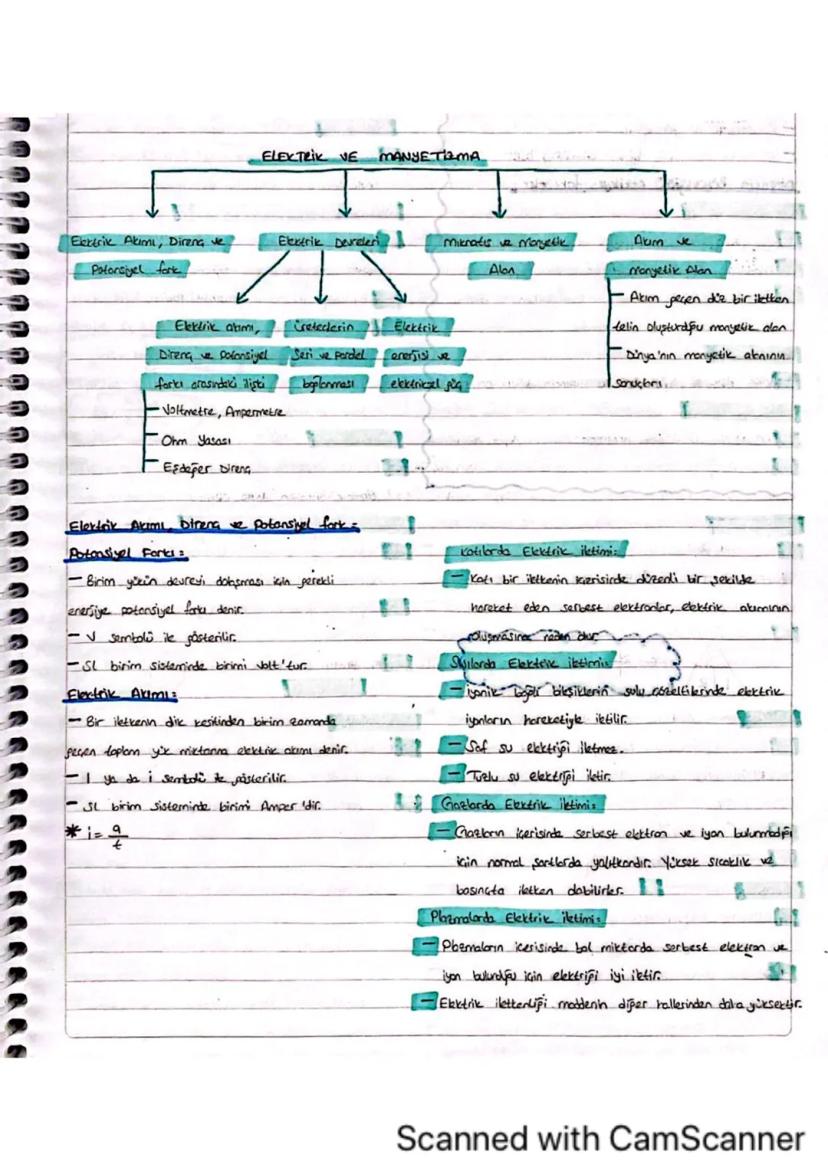 ELEKTRİK VE MANYETİZMA
Elektrik Akımı, Direnç ve
Potansiyel fark
Elektrik Devreleri
Mıknatıs ve Manyetik
Alan
Akım ve
Manyetik Alan
- Akım geçen düz bir iletken
telin oluşturduğu manyetik alan
- Dünya'nın manyetik alanının
sonuçları
Elektrik akımı,
Direnç ve Potansiyel
farkı arasındaki ilişki
Üreteçlerin
Seri ve Paralel
bağlanması
Elektrik
enerjisi ve
elektriksel güç
- Voltmetre, Ampermetre
- Ohm Yasası
- Eşdeğer Direnç
Elektrik Akımı, Direnç ve Potansiyel fark:
Potansiyel Farkı:
- Birim yükün devreyi dolaşması için gerekli
enerjiye potansiyel farkı denir.
- V sembolü ile gösterilir.
- SI birim sisteminde birimi Volt'tur.
Elektrik Akımı:
- Bir iletkenin dik kesitinden birim zamanda
geçen toplam yük miktarına elektrik akımı denir.
- I ya da i sembolü ile gösterilir.
- SI birim sisteminde birimi Amper'dir.
* i = q/t
Katılarda Elektrik iletimi:
- Katı bir iletkenin içerisinde düzenli bir şekilde
hareket eden serbest elektronlar, elektrik akımının
oluşmasına neden olur.
Sıvılarda Elektrik iletimi:
- İyonik bağlı bileşiklerin sulu çözeltilerinde elektrik
iyonların hareketiyle iletilir.
- Saf su elektriği iletmez.
- Tuzlu su elektriği iletir.
Gazlarda Elektrik iletimi:
- Gazların içerisinde serbest elektron ve iyon bulunmadığı
için normal şartlarda yalıtkandır. Yüksek sıcaklık ve
basınçta iletken olabilirler.
Plazmalarda Elektrik iletimi:
- Plazmaların içerisinde bol miktarda serbest elektron ve
iyon bulunduğu için elektriği iyi iletir.
- Elektrik iletkenliği maddenin diğer hallerinden daha yüksektir.
Scanned with CamScanner